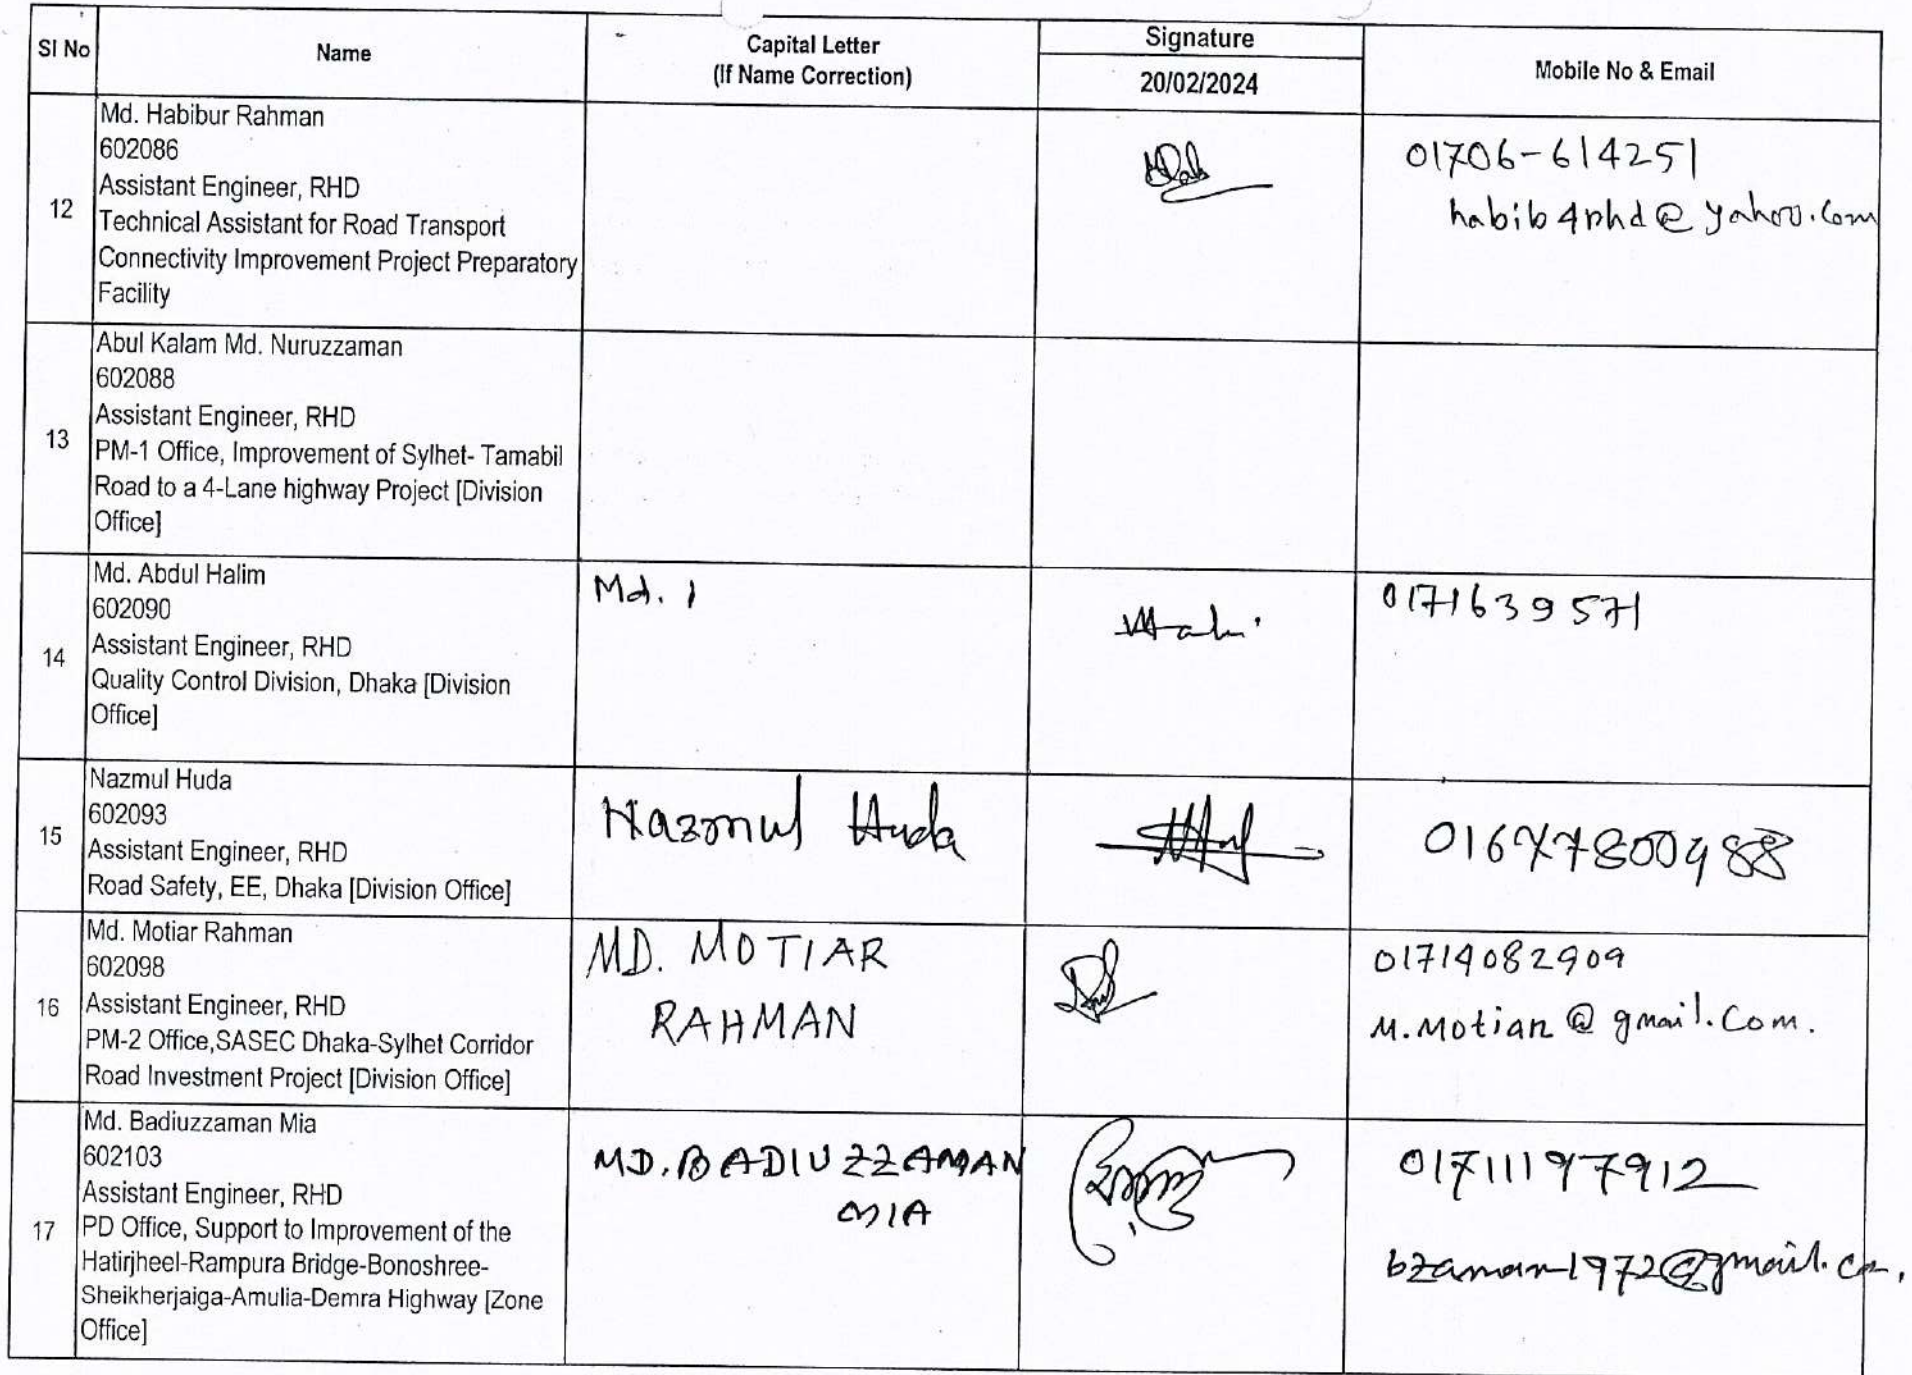 Sl No
Name
Capital Letter
(If Name Correction)
Signature
20/02/2024
Mobile No & Email
12
Md. Habibur Rahman
602086
Assistant Engineer, RHD
Technical Assistant for Road Transport
Connectivity Improvement Project Preparatory
Facility
01706-614251
habib4rhd@yahoo.com
13
Abul Kalam Md. Nuruzzaman
602088
Assistant Engineer, RHD
PM-1 Office, Improvement of Sylhet- Tamabil
Road to a 4-Lane highway Project [Division
Office]
14
Md. Abdul Halim
602090
Assistant Engineer, RHD
Quality Control Division, Dhaka [Division
Office]
Md.
0171639571
15
Nazmul Huda
602093
Assistant Engineer, RHD
Road Safety, EE, Dhaka [Division Office]
Nazmul Huda
01677800988
16
Md. Motiar Rahman
602098
Assistant Engineer, RHD
PM-2 Office,SASEC Dhaka-Sylhet Corridor
Road Investment Project [Division Office]
MD. MOTIAR
RAHMAN
01714082909
m.motiar@gmail.com.
17
Md. Badiuzzaman Mia
602103
Assistant Engineer, RHD
PD Office, Support to Improvement of the
Hatirjheel-Rampura Bridge-Bonoshree-
Sheikherjaiga-Amulia-Demra Highway [Zone
Office]
MD. BADIUZZAMAN
MIA
01711197912
bzaman1972@gmail.com